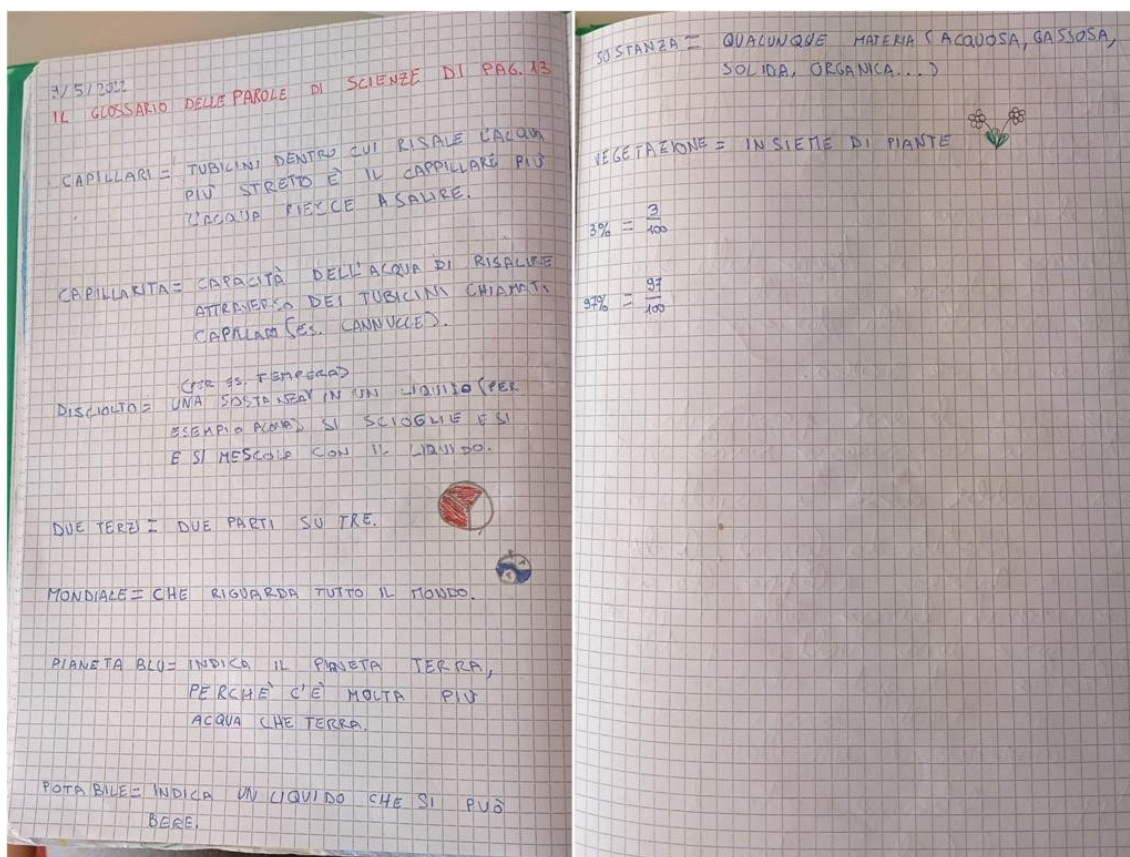 9/5/2022
IL GLOSSARIO DELLE PAROLE DI SCIENZE DI PAG. 13
CAPILLARI = TUBICINI DENTRO CUI RISALE L'ACQUA
PIÙ STRETTO È IL CAPPILLARE PIÙ
L'ACQUA RIESCE A SALIRE.
CAPILLARITÀ = CAPACITÀ DELL'ACQUA DI RISALIRE
ATTRAVERSO DEI TUBICINI CHIAMATI
CAPILLARI (ES. CANNUCCE).
(PER ES. TEMPERA)
DISCIOLTO = UNA SOSTANZA IN UN LIQUIDO (PER
ESEMPIO ACQUA) SI SCIOGLIE E SI
E SI MESCOLA CON IL LIQUIDO.
DUE TERZI = DUE PARTI SU TRE.
MONDIALE = CHE RIGUARDA TUTTO IL MONDO.
PIANETA BLU = INDICA IL PIANETA TERRA,
PERCHÈ C'È MOLTA PIÙ
ACQUA CHE TERRA.
POTABILE = INDICA UN LIQUIDO CHE SI PUÒ
BERE.
SOSTANZA = QUALUNQUE MATERIA (ACQUOSA, GASSOSA,
SOLIDA, ORGANICA...)
VEGETAZIONE = INSIEME DI PIANTE
3% = 3/100
97% = 97/100